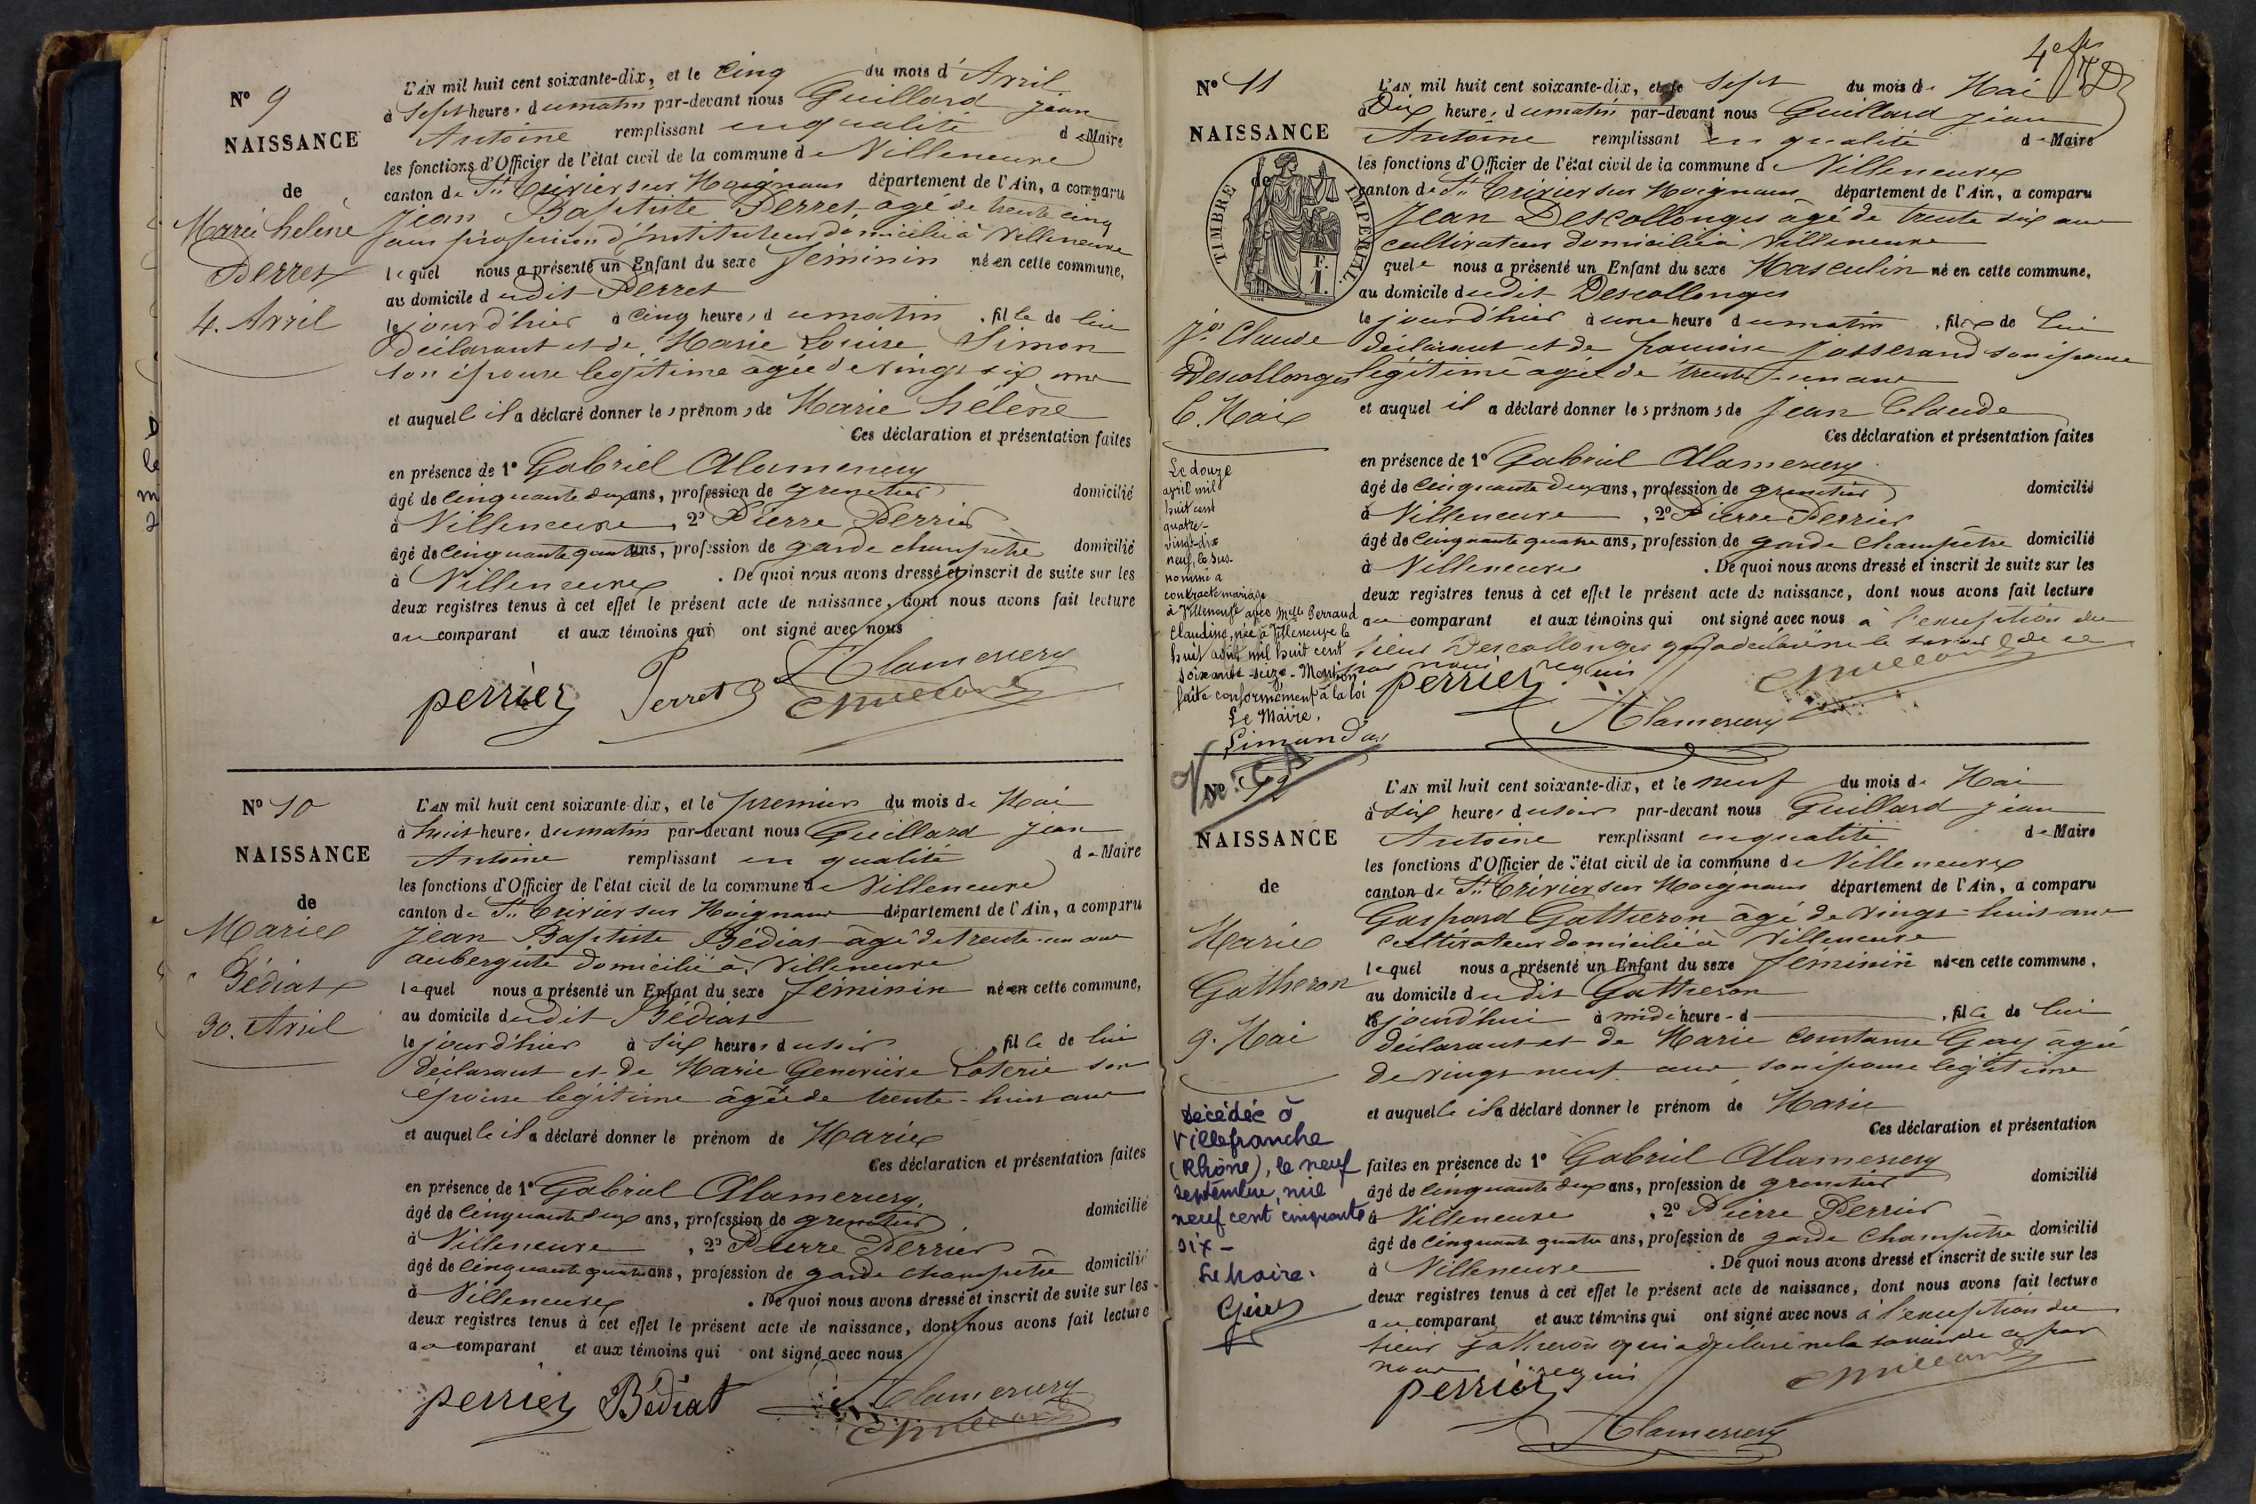 Nº 9
NAISSANCE
de
Marie helène
Perret
4. Avril
L'AN mil huit cent soixante-dix, et le Cinq du mois d'Avril
à Sept heures du matin par-devant nous Guillard Jean
Antoine remplissant en qualité de Maire
les fonctions d'Officier de l'état civil de la commune de Villeneuve
canton de St Trivier sur Moignans département de l'Ain, a comparu
Jean Baptiste Perret âgé de trente cinq
ans profession d'Instituteur domicilié à Villeneuve
lequel nous a présenté un Enfant du sexe féminin née en cette commune,
au domicile dudit Perret
le jourd'hier à cinq heures du matin, fille de lui
déclarant et de Marie Louise Simon
son épouse légitime âgée de vingt six ans
et auquelle il a déclaré donner les prénoms de Marie helène
Ces déclaration et présentation faites
en présence de 1º Gabriel Alamercery
âgé de cinquante deux ans, profession de grenetier domicilié
à Villeneuve, 2º Pierre Perrier
âgé de cinquante quatre ans, profession de garde champêtre domicilié
à Villeneuve. De quoi nous avons dressé et inscrit de suite sur les
deux registres tenus à cet effet le présent acte de naissance, dont nous avons fait lecture
au comparant et aux témoins qui ont signé avec nous
Alamercery
perrier Perret Guillard
Nº 10
NAISSANCE
de
Marie
Bédiat
30. Avril
L'AN mil huit cent soixante-dix, et le premier du mois de Mai
à huit heures du matin par-devant nous Guillard Jean
Antoine remplissant en qualité de Maire
les fonctions d'Officier de l'état civil de la commune de Villeneuve
canton de St Trivier sur Moignans département de l'Ain, a comparu
Jean Baptiste Bédiat âgé de trente-un ans
aubergiste domicilié à Villeneuve
lequel nous a présenté un Enfant du sexe féminin née en cette commune,
au domicile dudit Bédiat
le jourd'hier à six heures du soir, fille de lui
déclarant et de Marie Geneviève Loterie son
épouse légitime âgée de trente-huit ans
et auquelle il a déclaré donner le prénom de Marie
Ces déclaration et présentation faites
en présence de 1º Gabriel Alamercery
âgé de cinquante deux ans, profession de grenetier domicilié
à Villeneuve, 2º Pierre Perrier
âgé de cinquante quatre ans, profession de garde champêtre domicilié
à Villeneuve. De quoi nous avons dressé et inscrit de suite sur les
deux registres tenus à cet effet le présent acte de naissance, dont nous avons fait lecture
au comparant et aux témoins qui ont signé avec nous
perrier Bédiat Alamercery
Guillard
4e
Nº 11
NAISSANCE
de
TIMBRE IMPERIAL
Jn Claude
Descollonges
6. Mai
L'AN mil huit cent soixante-dix, et le Sept du mois de Mai
à Dix heures du matin par-devant nous Guillard Jean
Antoine remplissant en qualité de Maire
les fonctions d'Officier de l'état civil de la commune de Villeneuve
canton de St Trivier sur Moignans département de l'Ain, a comparu
Jean Descollonges âgé de trente six ans
cultivateur domicilié à Villeneuve
quel nous a présenté un Enfant du sexe Masculin né en cette commune,
au domicile dudit Descollonges
le jourd'hier à une heure du matin, fils de lui
déclarant et de francoise Josserand son épouse
légitime âgée de trente-un ans
et auquel il a déclaré donner les prénoms de Jean Claude
Ces déclaration et présentation faites
en présence de 1º Gabriel Alamercery
âgé de cinquante deux ans, profession de grenetier domicilié
à Villeneuve, 2º Pierre Perrier
âgé de cinquante quatre ans, profession de garde champêtre domicilié
à Villeneuve. De quoi nous avons dressé et inscrit de suite sur les
deux registres tenus à cet effet le présent acte de naissance, dont nous avons fait lecture
au comparant et aux témoins qui ont signé avec nous à l'exception du
sieur Descollonges qui a déclaré ne le savoir de ce
par nous requis
perrier Guillard
Alamercery
Le douze
avril mil
huit cent
quatre-
vingt-dix
neuf, le sus-
nommé a
contracté mariage
à Villeneuve avec Melle Perraud
Claudine, née à Villeneuve le
huit août mil huit cent
soixante-seize - Mention
faite conformément à la loi
Le Maire,
Limandas
Nº 12
NAISSANCE
de
Marie
Gatheron
9. Mai
L'AN mil huit cent soixante-dix, et le neuf du mois de Mai
à six heures du soir par-devant nous Guillard Jean
Antoine remplissant en qualité de Maire
les fonctions d'Officier de l'état civil de la commune de Villeneuve
canton de St Trivier sur Moignans département de l'Ain, a comparu
Gaspard Gatheron âgé de vingt-huit ans
cultivateur domicilié à Villeneuve
lequel nous a présenté un Enfant du sexe féminin née en cette commune,
au domicile dudit Gatheron
le jourd'hui à midi heure d, fille de lui
déclarant et de Marie Constance Gay âgée
de vingt neuf ans son épouse légitime
et auquelle il a déclaré donner le prénom de Marie
Ces déclaration et présentation
faites en présence de 1º Gabriel Alamercery
âgé de cinquante deux ans, profession de grenetier domicilié
à Villeneuve, 2º Pierre Perrier
âgé de cinquante quatre ans, profession de garde champêtre domicilié
à Villeneuve. De quoi nous avons dressé et inscrit de suite sur les
deux registres tenus à cet effet le présent acte de naissance, dont nous avons fait lecture
au comparant et aux témoins qui ont signé avec nous à l'exception du
sieur Gatheron qui a déclaré ne le savoir de ce par
nous requis
perrier Guillard
Alamercery
Décédée à
Villefranche
(Rhône), le neuf
septembre mil
neuf cent cinquante
six -
Le Maire.